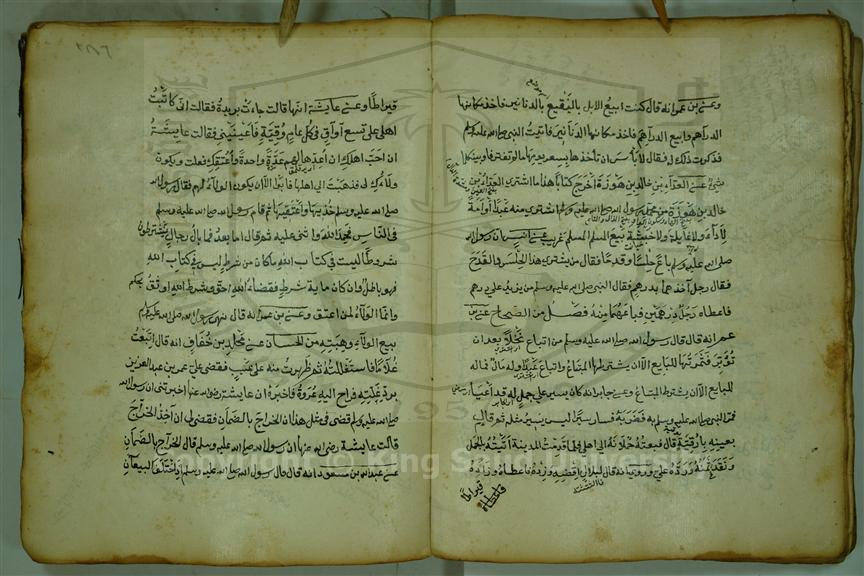 وعن ابن عمر انه قال كنت ابيع الابل بالنقيع بالدنانير فاخذ مكانها
الدراهم وابيع بالدراهم فاخذ مكانها الدنانير فاتيت النبي صلى الله عليه وسلم
فذكرت ذلك له فقال لا بأس ان تأخذها بسعر يومها ما لم تفترقا وبينكما
شيء عن العداء بن خالد بن هوذة اخرج كتابا هذا ما اشترى العداء بن
خالد بن هوذة من محمد رسول الله صلى الله عليه وسلم اشترى منه عبدا او امة
لا داء ولا غايلة ولا خبثة بيع المسلم المسلم غريب عن انس ان رسول الله
صلى الله عليه وسلم باع حلسا وقدحا فقال من يشتري هذا الحلس والقدح
فقال رجل آخذهما بدرهم فقال النبي صلى الله عليه وسلم من يزيد على درهم
فاعطاه رجل درهمين فباعهما منه فصل من الصحاح عن ابن
عمر انه قال قال رسول الله صلى الله عليه وسلم من ابتاع نخلا بعد ان
تؤبر فثمرتها للبايع الا ان يشترط المبتاع ومن ابتاع عبدا وله مال فماله
للبايع الا ان يشترط المبتاع وعن جابر انه كان يسير على جمل له قد اعيا
فمر النبي صلى الله عليه وسلم به فضربه فسار سيرا ليس يسير مثله ثم قال
بعنيه بوقية قال فبعته حملانه الى اهلي فلما قدمت المدينة اتيته بالجمل
ونقدني ثمنه ورده علي وروي انه قال لبلال اقضه وزده فاعطاه وزاده
فاعطاه قيراطا
قيراطا وعن عايشة انها قالت جاءت بريرة فقالت اني كاتبت
اهلي على تسع اواق في كل عام وقية فاعينيني فقالت عايشة
ان احب اهلك ان اعدها لهم عدة واحدة واعتقك فعلت ويكون
ولاءك لي فذهبت الى اهلها فابوا الا ان يكون الولاء لهم فقال رسول الله
صلى الله عليه وسلم خذيها واعتقيها ثم قام رسول الله صلى الله عليه وسلم
في الناس فحمد الله واثنى عليه ثم قال اما بعد فما بال رجال يشترطون
شروطا ليست في كتاب الله ما كان من شرط ليس في كتاب الله
فهو باطل وان كان ماية شرط فقضاء الله احق وشرط الله اوثق
وانما الولاء لمن اعتق وعن ابن عمر انه قال نهى رسول الله صلى الله عليه وسلم
بيع الولاء وهبته من الحسان عن مخلد بن خفاف انه قال ابتعت
غلاما فاستغللته ثم ظهرت منه على عيب فقضى علي عمر بن عبد العزيز
برد غلته فراح اليه عروة فاخبره ان عايشة رضي الله عنها اخبرتني ان رسول الله
صلى الله عليه وسلم قضى في مثل هذا ان الخراج بالضمان فقضى لي ان اخذ الخراج
قالت عايشة رضي الله عنها ان رسول الله صلى الله عليه وسلم قال الخراج بالضمان
عن عبد الله بن مسعود انه قال قال رسول الله صلى الله عليه وسلم اذا اختلف البيعان